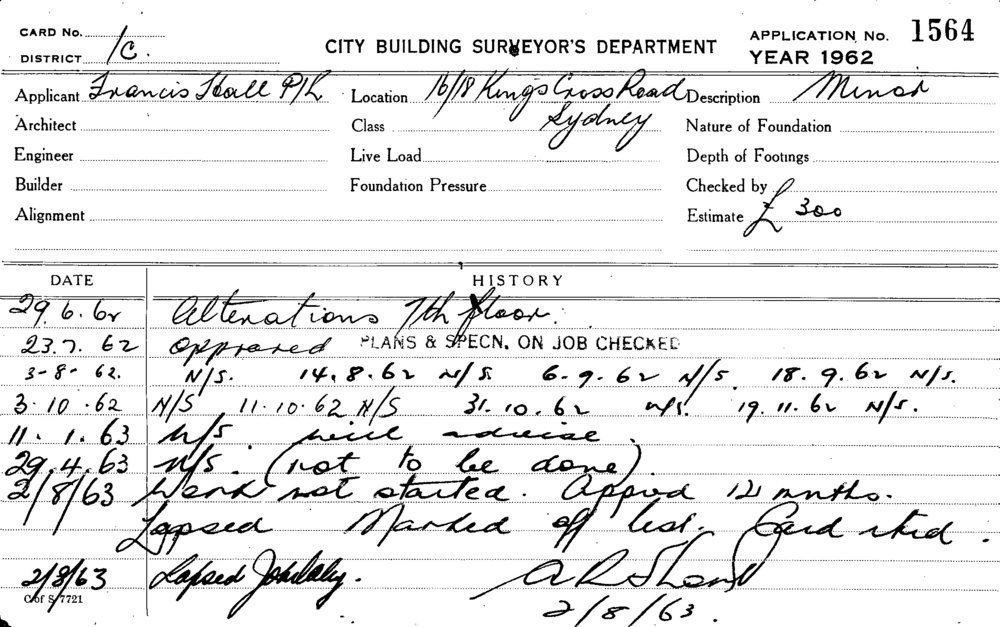 CARD No.
DISTRICT 1C.
CITY BUILDING SURVEYOR'S DEPARTMENT
APPLICATION No. 1564
YEAR 1962
Applicant Francis Hall P/L Location 16/18 Kings Cross Road Description Minor
Architect Class Sydney Nature of Foundation
Engineer Live Load Depth of Footings
Builder Foundation Pressure Checked by
Alignment Estimate £ 300
DATE HISTORY
29.6.62 Alterations 7th floor.
23.7.62 approved PLANS & SPECN. ON JOB CHECKED
3-8-62. N/S. 14.8.62 N/S. 6.9.62 N/S 18.9.62 N/S.
3.10.62 N/S 11.10.62 N/S 31.10.62 N/S. 19.11.62 N/S.
11.1.63 N/S. will advise.
29.4.63 N/S. (not to be done).
2/8/63 Work not started. Approd 12 mnths.
Lapsed Marked off list. Card
2/8/63 Lapsed
C of S 7721
2/8/63.